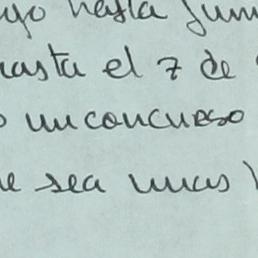 yo hasta jun
hasta el 7 de
un concurso
e sea unas